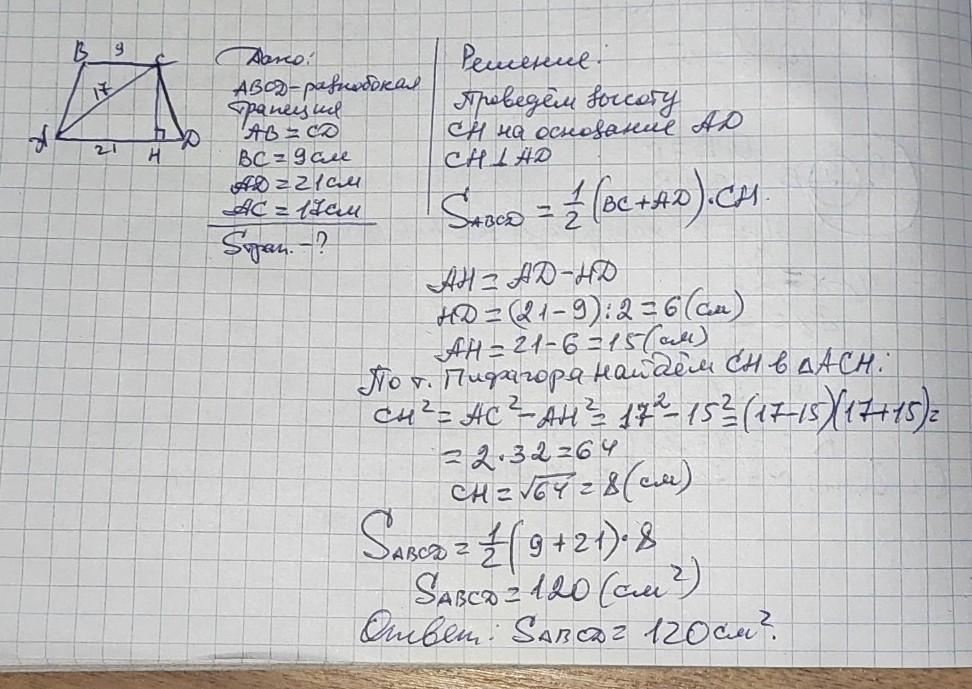 B 9 C
17
A 21 H D
Дано:
ABCD - равнобокая
трапеция
AB = CD
BC = 9 см
AD = 21 см
AC = 17 см
Sтрап. - ?
Решение:
Проведём высоту
CH на основание AD
CH ⊥ AD
S_ABCD = 1/2 (BC + AD) · CH.
AH = AD - HD
HD = (21 - 9) : 2 = 6 (см)
AH = 21 - 6 = 15 (см)
По т. Пифагора найдём CH в △ACH:
CH² = AC² - AH² = 17² - 15² = (17-15)(17+15) =
= 2 · 32 = 64
CH = √64 = 8 (см)
S_ABCD = 1/2 (9 + 21) · 8
S_ABCD = 120 (см²)
Ответ: S_ABCD = 120 см².